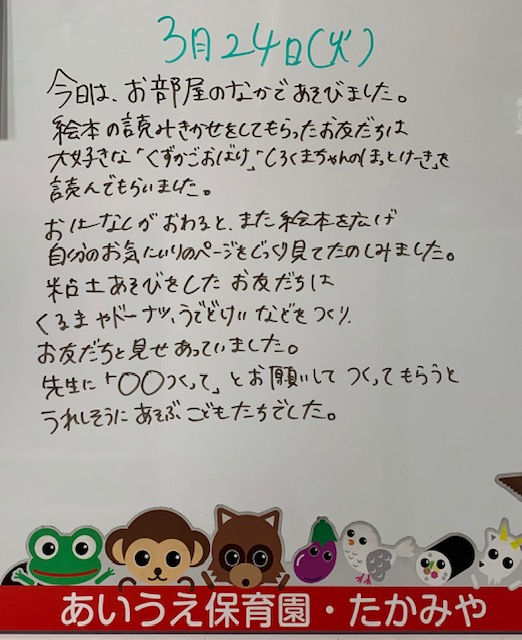 3月24日(火)
今日は、お部屋のなかであそびました。
絵本の読みきかせをしてもらったお友だちは
大好きな「くずかごおばけ」「しろくまちゃんのほっとけーき」を
読んでもらいました。
おはなしがおわると、また絵本を広げ
自分のお気にいりのページをじっくり見てたのしみました。
粘土あそびをしたお友だちは
くるまやドーナツ、うでどけいなどをつくり、
お友だちと見せあっていました。
先生に「〇〇つくって」とお願いしてつくってもらうと
うれしそうにあそぶこどもたちでした。
あいうえ保育園・たかみや